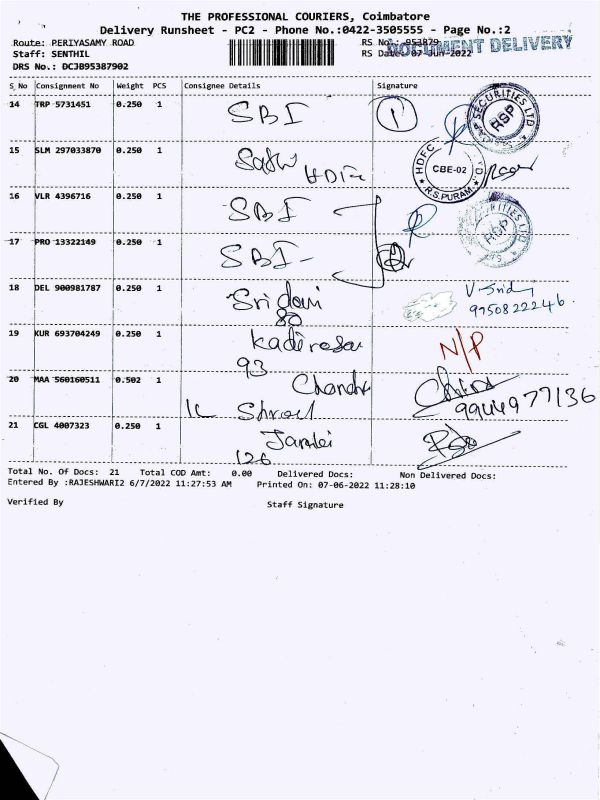 THE PROFESSIONAL COURIERS, Coimbatore
Delivery Runsheet - PC2 - Phone No.:0422-3505555 - Page No.:2
Route: PERIYASAMY ROAD
RS No.: 953879
DOCUMENT DELIVERY
Staff: SENTHIL
RS Date: 07-Jun-2022
DRS No.: DCJB95387902
S_No Consignment No Weight PCS Consignee Details Signature
14 TRP 5731451 0.250 1 SBI 1
SECURITIES LTD
RSP
15 SLM 297033870 0.250 1 HDFC
HDFC
CBE-02
R.S.PURAM
16 VLR 4396716 0.250 1 SBI
RSP
17 PRO 13322149 0.250 1 SBI
18 DEL 900981787 0.250 1 Sri devi
80
V. Sridi
9750822246
19 KUR 693704249 0.250 1 Kadiresan N/P
93
20 MAA 560160511 0.502 1 Chandr
9944977136
21 CGL 4007323 0.250 1
126
Total No. Of Docs: 21 Total COD Amt: 0.00 Delivered Docs: Non Delivered Docs:
Entered By :RAJESHWARI2 6/7/2022 11:27:53 AM Printed On: 07-06-2022 11:28:10
Verified By Staff Signature